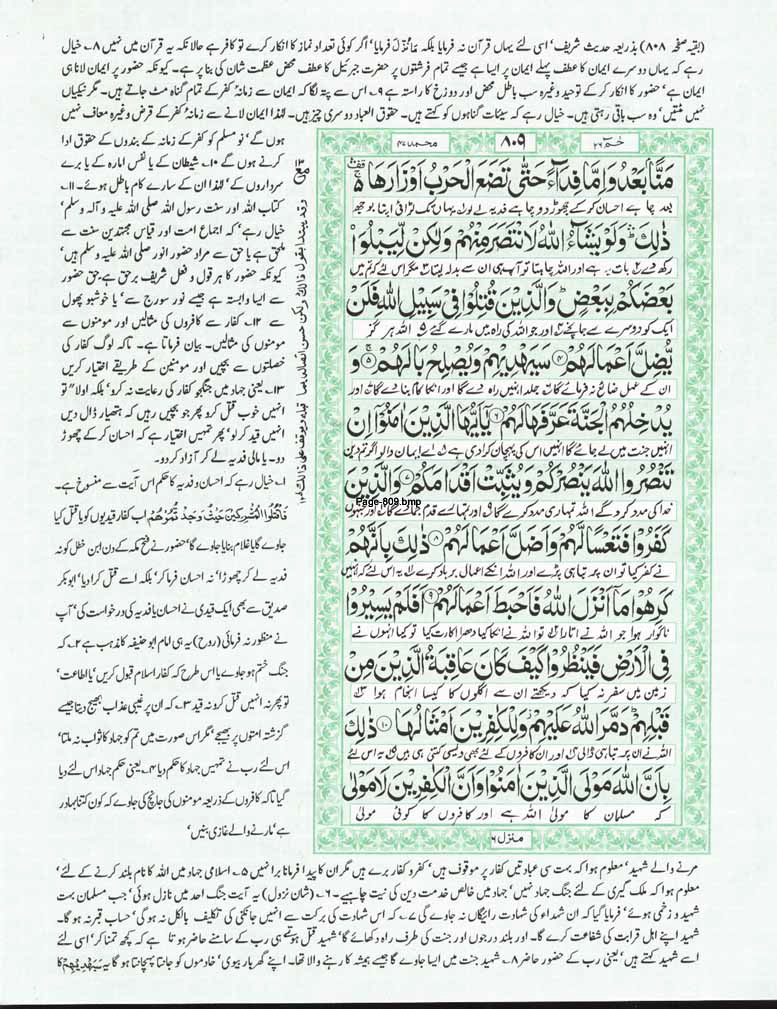 (بقیہ صفحہ ۸۰۸) بذریعہ حدیث شریف' اسی لئے یہاں قرآن نہ فرمایا بلکہ مَانُزِّلَ فرمایا' اگر کوئی تعداد نماز کا انکار کرے تو کافر ہے حالانکہ یہ قرآن میں نہیں ۸۔ خیال
رہے کہ یہاں دوسرے ایمان کا عطف پہلے ایمان پر ایسا ہے جیسے تمام فرشتوں پر حضرت جبرئیل کا عطف محض عظمت شان کی بنا پر ہے۔ کیونکہ حضور پر ایمان لانا ہی
ایمان ہے' حضور کا انکار کر کے توحید وغیرہ سب باطل محض اور دوزخ کا راستہ ہے ۹۔ اس سے پتہ لگا کہ ایمان سے زمانہ کفر کے تمام گناہ مٹ جاتے ہیں۔ مگر نیکیاں
نہیں مٹتیں' وہ سب باقی رہتی ہیں۔ خیال رہے کہ سیئات گناہوں کو کہتے ہیں۔ حقوق العباد دوسری چیز ہیں۔ لہٰذا ایمان لانے سے زمانہ کفر کے قرض وغیرہ معاف نہیں
حٰمٓ ۲۶
۸۰۹
محمد ۴۷
مَنًّۢا بَعْدُ وَاِمَّا فِدَآءً حَتّٰى تَضَعَ الْحَرْبُ اَوْزَارَهَا
بعد چاہے احسان کرکے چھوڑ دو چاہے فدیہ لے لو یہاں تک لڑائی اپنا بوجھ
ذٰلِكَ وَلَوْ يَشَآءُ اللّٰهُ لَانْتَصَرَ مِنْهُمْ وَلٰكِنْ لِّيَبْلُوَا
رکھ دے بات یہ ہے اور اللہ چاہتا تو آپ ہی ان سے بدلہ لیتا مگر اس لئے کہ تم میں
بَعْضَكُمْ بِبَعْضٍ وَالَّذِيْنَ قُتِلُوْا فِيْ سَبِيْلِ اللّٰهِ فَلَنْ
ایک کو دوسرے سے جانچے اور جو اللہ کی راہ میں مارے گئے اللہ ہر گز
يُّضِلَّ اَعْمَالَهُمْ ۴ سَيَهْدِيْهِمْ وَيُصْلِحُ بَالَهُمْ ۵ وَ
ان کے عمل ضائع نہ فرمائے گا جلد انہیں راہ دے گا اور انکا کام بنا دے گا اور
يُدْخِلُهُمُ الْجَنَّةَ عَرَّفَهَا لَهُمْ ۶ يٰٓاَيُّهَا الَّذِيْنَ اٰمَنُوْٓا اِنْ
انہیں جنت میں لے جائے گا انہیں اس کی پہچان کرا دی ہے اے ایمان والو اگر تم دین
تَنْصُرُوا اللّٰهَ يَنْصُرْكُمْ وَيُثَبِّتْ اَقْدَامَكُمْ ۷ وَالَّذِيْنَ
Page-809.bmp
خدا کی مدد کرو گے اللہ تمہاری مدد کرے گا اور تمہارے قدم جمادے گا اور جنہوں
كَفَرُوْا فَتَعْسًا لَّهُمْ وَاَضَلَّ اَعْمَالَهُمْ ۸ ذٰلِكَ بِاَنَّهُمْ
نے کفر کیا تو ان پر تباہی پڑے اور اللہ انکے اعمال برباد کرے یہ اس لئے کہ انہیں
كَرِهُوْا مَآ اَنْزَلَ اللّٰهُ فَاَحْبَطَ اَعْمَالَهُمْ ۹ اَفَلَمْ يَسِيْرُوْا
ناگوار ہوا جو اللہ نے اتارا تو اللہ نے انکا کیا دھرا اکارت کیا تو کیا انہوں نے
فِي الْاَرْضِ فَيَنْظُرُوْا كَيْفَ كَانَ عَاقِبَةُ الَّذِيْنَ مِنْ
زمین میں سفر نہ کیا کہ دیکھتے ان سے اگلوں کا کیسا انجام ہوا
قَبْلِهِمْ دَمَّرَ اللّٰهُ عَلَيْهِمْ وَلِلْكٰفِرِيْنَ اَمْثَالُهَا ۱۰ ذٰلِكَ
اللہ نے ان پر تباہی ڈالی اور ان کافروں کے لئے بھی ویسی کتنی ہی ہیں یہ اس لئے
بِاَنَّ اللّٰهَ مَوْلَى الَّذِيْنَ اٰمَنُوْا وَاَنَّ الْكٰفِرِيْنَ لَا مَوْلٰى
کہ مسلمان کا مولیٰ اللہ ہے اور کافروں کا کوئی مولیٰ
منزل ۶
ہوں گے' نو مسلم کو کفر کے زمانہ کے بندوں کے حقوق ادا
کرنے ہوں گے ۱۰۔ شیطان کے یا نفس امارہ کے یا برے
سرداروں کے' لہٰذا ان کے سارے کام باطل ہوئے۔ ۱۱۔
کتاب اللہ اور سنت رسول اللہ صلی اللہ علیہ و آلہ و سلم'
خیال رہے' کہ اجماع امت اور قیاس مجتہدین سنت سے
ملحق ہے یا حق سے مراد حضور انور صلی اللہ علیہ و سلم ہیں'
کیونکہ حضور کا ہر قول و فعل شریف برحق ہے حق حضور
سے ایسا وابستہ ہے جیسے نور سورج سے' یا خوشبو پھول
سے ۱۲۔ کفار سے کافروں کی مثالیں اور مومنوں سے
مومنوں کی مثالیں۔ بیان فرماتا ہے۔ تاکہ لوگ کفار کی
خصلتوں سے بچیں اور مومنین کے طریقے اختیار کریں
۱۳۔ یعنی جہاد میں جنگجو کفار کی رعایت نہ کرو' بلکہ اولا" تو
انہیں خوب قتل کرو پھر جو بچیں رہیں کہ ہتھیار ڈال دیں
انہیں قید کر لو' پھر تمہیں اختیار ہے کہ احسان کر کے چھوڑ
دو۔ یا مالی فدیہ لے کر آزاد کر دو۔
۱۔ خیال رہے کہ احسان و فدیہ کا حکم اس آیت سے منسوخ ہے۔
فَاقْتُلُوا الْمُشْرِكِيْنَ حَيْثُ وَجَدْتُّمُوْهُمْ اب کفار قیدیوں کو یا قتل کیا
جاوے گا یا غلام بنایا جاوے گا' حضور نے فتح مکہ کے دن ابن خطل کو نہ
فدیہ لے کر چھوڑا' نہ احسان فرما کر' بلکہ اسے قتل کرا دیا' ابوبکر
صدیق سے بھی ایک قیدی نے احسان یا فدیہ کی درخواست کی' آپ
نے منظور نہ فرمائی (روح) یہ ہی امام ابو حنیفہ کا مذہب ہے ۲۔ کہ
جنگ ختم ہو جاوے یا اس طرح کہ کفار اسلام قبول کریں' یا اطاعت'
تو پھر نہ انہیں قتل کرو نہ قید ۳۔ کہ ان پر غیبی عذاب بھیج دیتا جیسے
گزشتہ امتوں پر بھیجے' مگر اس صورت میں تم کو جہاد کا ثواب نہ ملتا'
اس لئے رب نے تمہیں جہاد کا حکم دیا ۴۔ یعنی حکم جہاد اس لئے دیا
گیا تاکہ کافروں کے ذریعہ مومنوں کی جانچ کی جاوے کہ کون کتنا بہادر
ہے' مارنے والے غازی بنیں'
مرنے والے شہید' معلوم ہوا کہ بہت سی عبادتیں کفار پر موقوف ہیں' کفر و کفار برے ہیں مگر ان کا پیدا فرمانا برا نہیں ۵۔ اسلامی جہاد میں اللہ کا نام بلند کرنے کے لئے'
معلوم ہوا کہ ملک گیری کے لئے جنگ جہاد نہیں' جہاد میں خالص خدمت دین کی نیت چاہیے۔ ۶۔ (شان نزول) یہ آیت جنگ احد میں نازل ہوئی' جب مسلمان بہت
شہید و زخمی ہوئے' فرمایا گیا کہ ان شہداء کی شہادت رائیگاں نہ جاوے گی ۷۔ کہ اس شہادت کی برکت سے انہیں جانکنی کی تکلیف بالکل نہ ہوگی' حساب قبر نہ ہو گا۔
شہید اپنے اہل قرابت کی شفاعت کرے گا۔ اور بلند درجوں اور جنت کی طرف راہ دکھائے گا' شہید قتل ہوتے ہی رب کے سامنے حاضر ہوتا ہے کہ کچھ تمنا کر' اسی لئے
اسے شہید کہتے ہیں' یعنی رب کے حضور حاضر ۸۔ شہید جنت میں ایسا جاوے گا جیسے ہمیشہ کا رہنے والا تھا۔ اپنے گھر یار بیوی' خادموں کو جانتا پہچانتا ہو گا یہ سَيَهْدِيْهِمْ کا